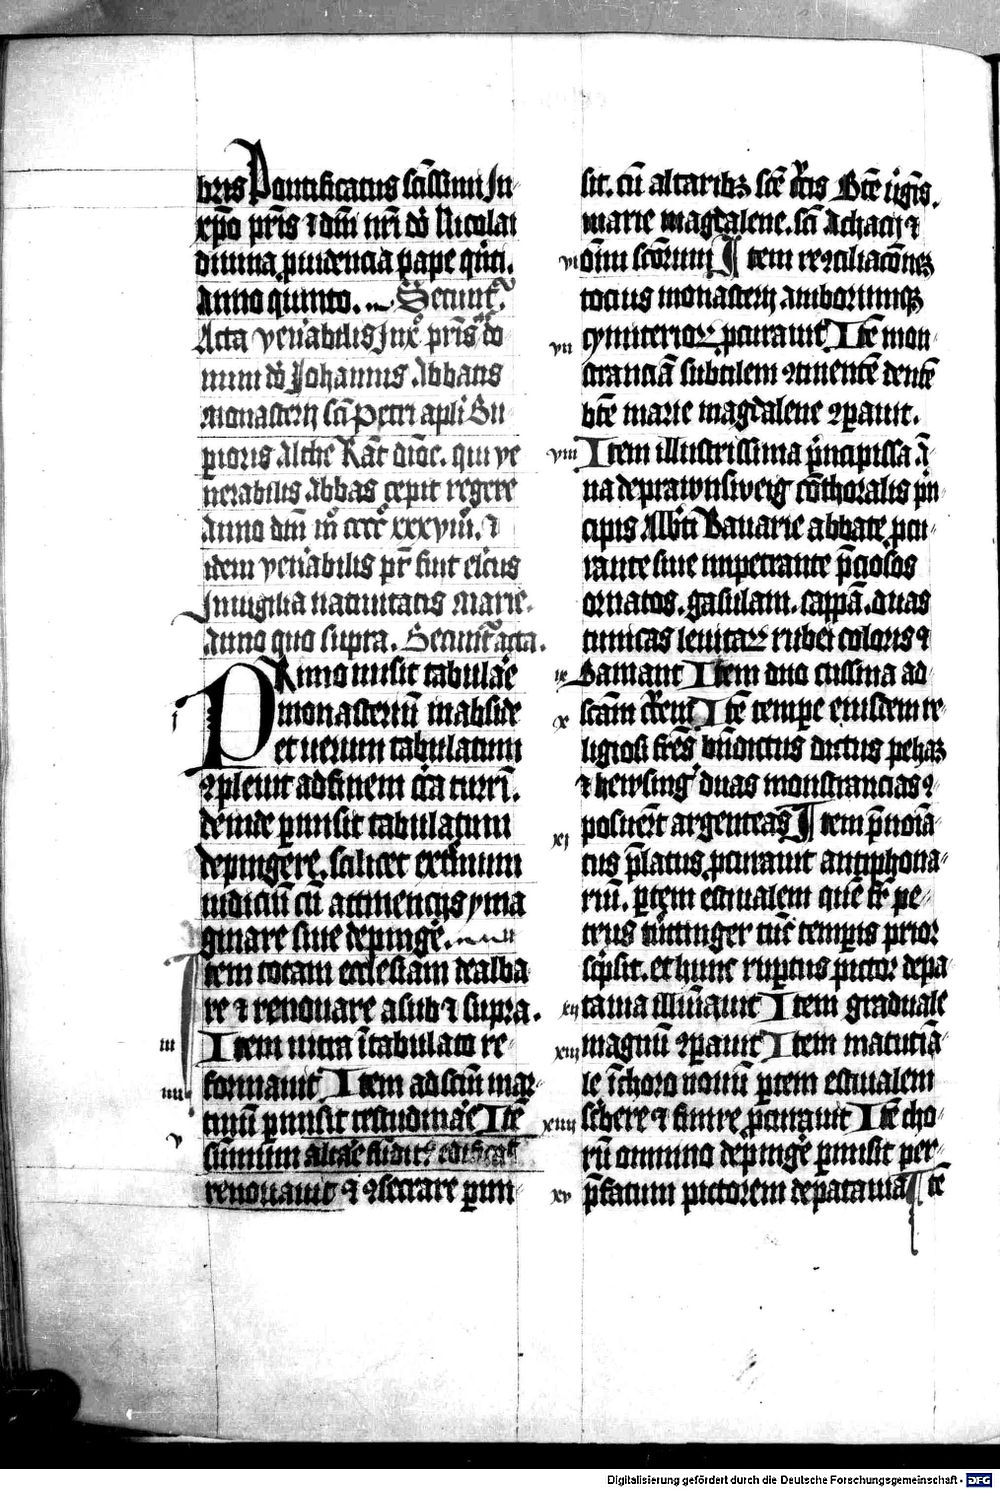 bris Pontificatus sc̄issimi In
xp̄o pr̄is ⁊ dn̄i nr̄i dn̄i Nicolai
diuina prudencia pape qn̄ti.
Anno quinto. Secunt̄
Acta ven̄abilis In xp̄o pr̄is do
mini dn̄i Johannis Abbatis
Monasterij sc̄i Petri apl̄i Su
perioris Altche Rat̄ dioc̄. qui ve
nerabilis Abbas cepit regere
Anno dn̄i mo cccco xxxviij. ⁊
idem ven̄abilis pr̄ fuit elc̄us
In uigilia natiuitatis Marie.
Anno quo supra. Secunt̄ acta.
PRimo iussit tabulāe
monasteriū in abside
et uerum tabulatum
⁊pleuit ad finem cr̄ca turrī.
deinde p̄misit tabulatum
depingere. scilicet extimum
iudiciū cū attinencijs yma
ginare siue depingē.
Item totam ecclesiam dealba
re ⁊ renouare a sub ⁊ supra.
iii Item intra ītabulato re
formauit Item ad sc̄m mar
iiii tinū p̄misit testudināe Itē
v summū altāe
renouauit ⁊ ⁊secrare p̄mi
sit. cū altaribꝫ sc̄e cr̄cis Btē v̄gīs.
marie magdalene. sc̄i Achacij ⁊
vi om̄iū sc̄orum Item re⁊ciliac̄ones
tocius monasterij amborumqꝫ
vii cymiterioꝝ p̄curauit Itē mon
stranciā subtilem ⁊tinentē dentē
btē marie magdalene ⁊pauit.
viii Item illustrissima p̄ncipissa ān
na de prawnsweig cōthoralis p̄n
cipis Alb̄ti Bauarie abbate p̄cu
rante siue impetrante p̄ciosos
ornatos. gasulam. cappā. duas
tunicas leuitaꝝ rubei coloris ⁊
ix pauit Item duo cussina ad
x sc̄am cr̄cem Itē tempe eiusdem re
ligiosi fr̄es bn̄dictus dictus pehaꝫ
⁊ hewsing duas monstrancias ⁊
xi posuert̄ argenteas Item p̄noiā
tus p̄latus p̄curauit antiphona
riū. p̄tem estiualem quē fr̄ pe
trus tūttinger tūc tempis prior
sc̄psit. et hunc rupertus pictor de pa
xii tauia illūiauit Item graduale
xiii magnū ⁊pauit Item matutiā
le ī choro nouū p̄tem estiualem
xiiii sc̄bere ⁊ finire p̄curauit Itē cho
rū omnino depingē p̄misit per
xv p̄fatum pictorem de patauia Itē
Digitalisierung gefördert durch die Deutsche Forschungsgemeinschaft - DFG